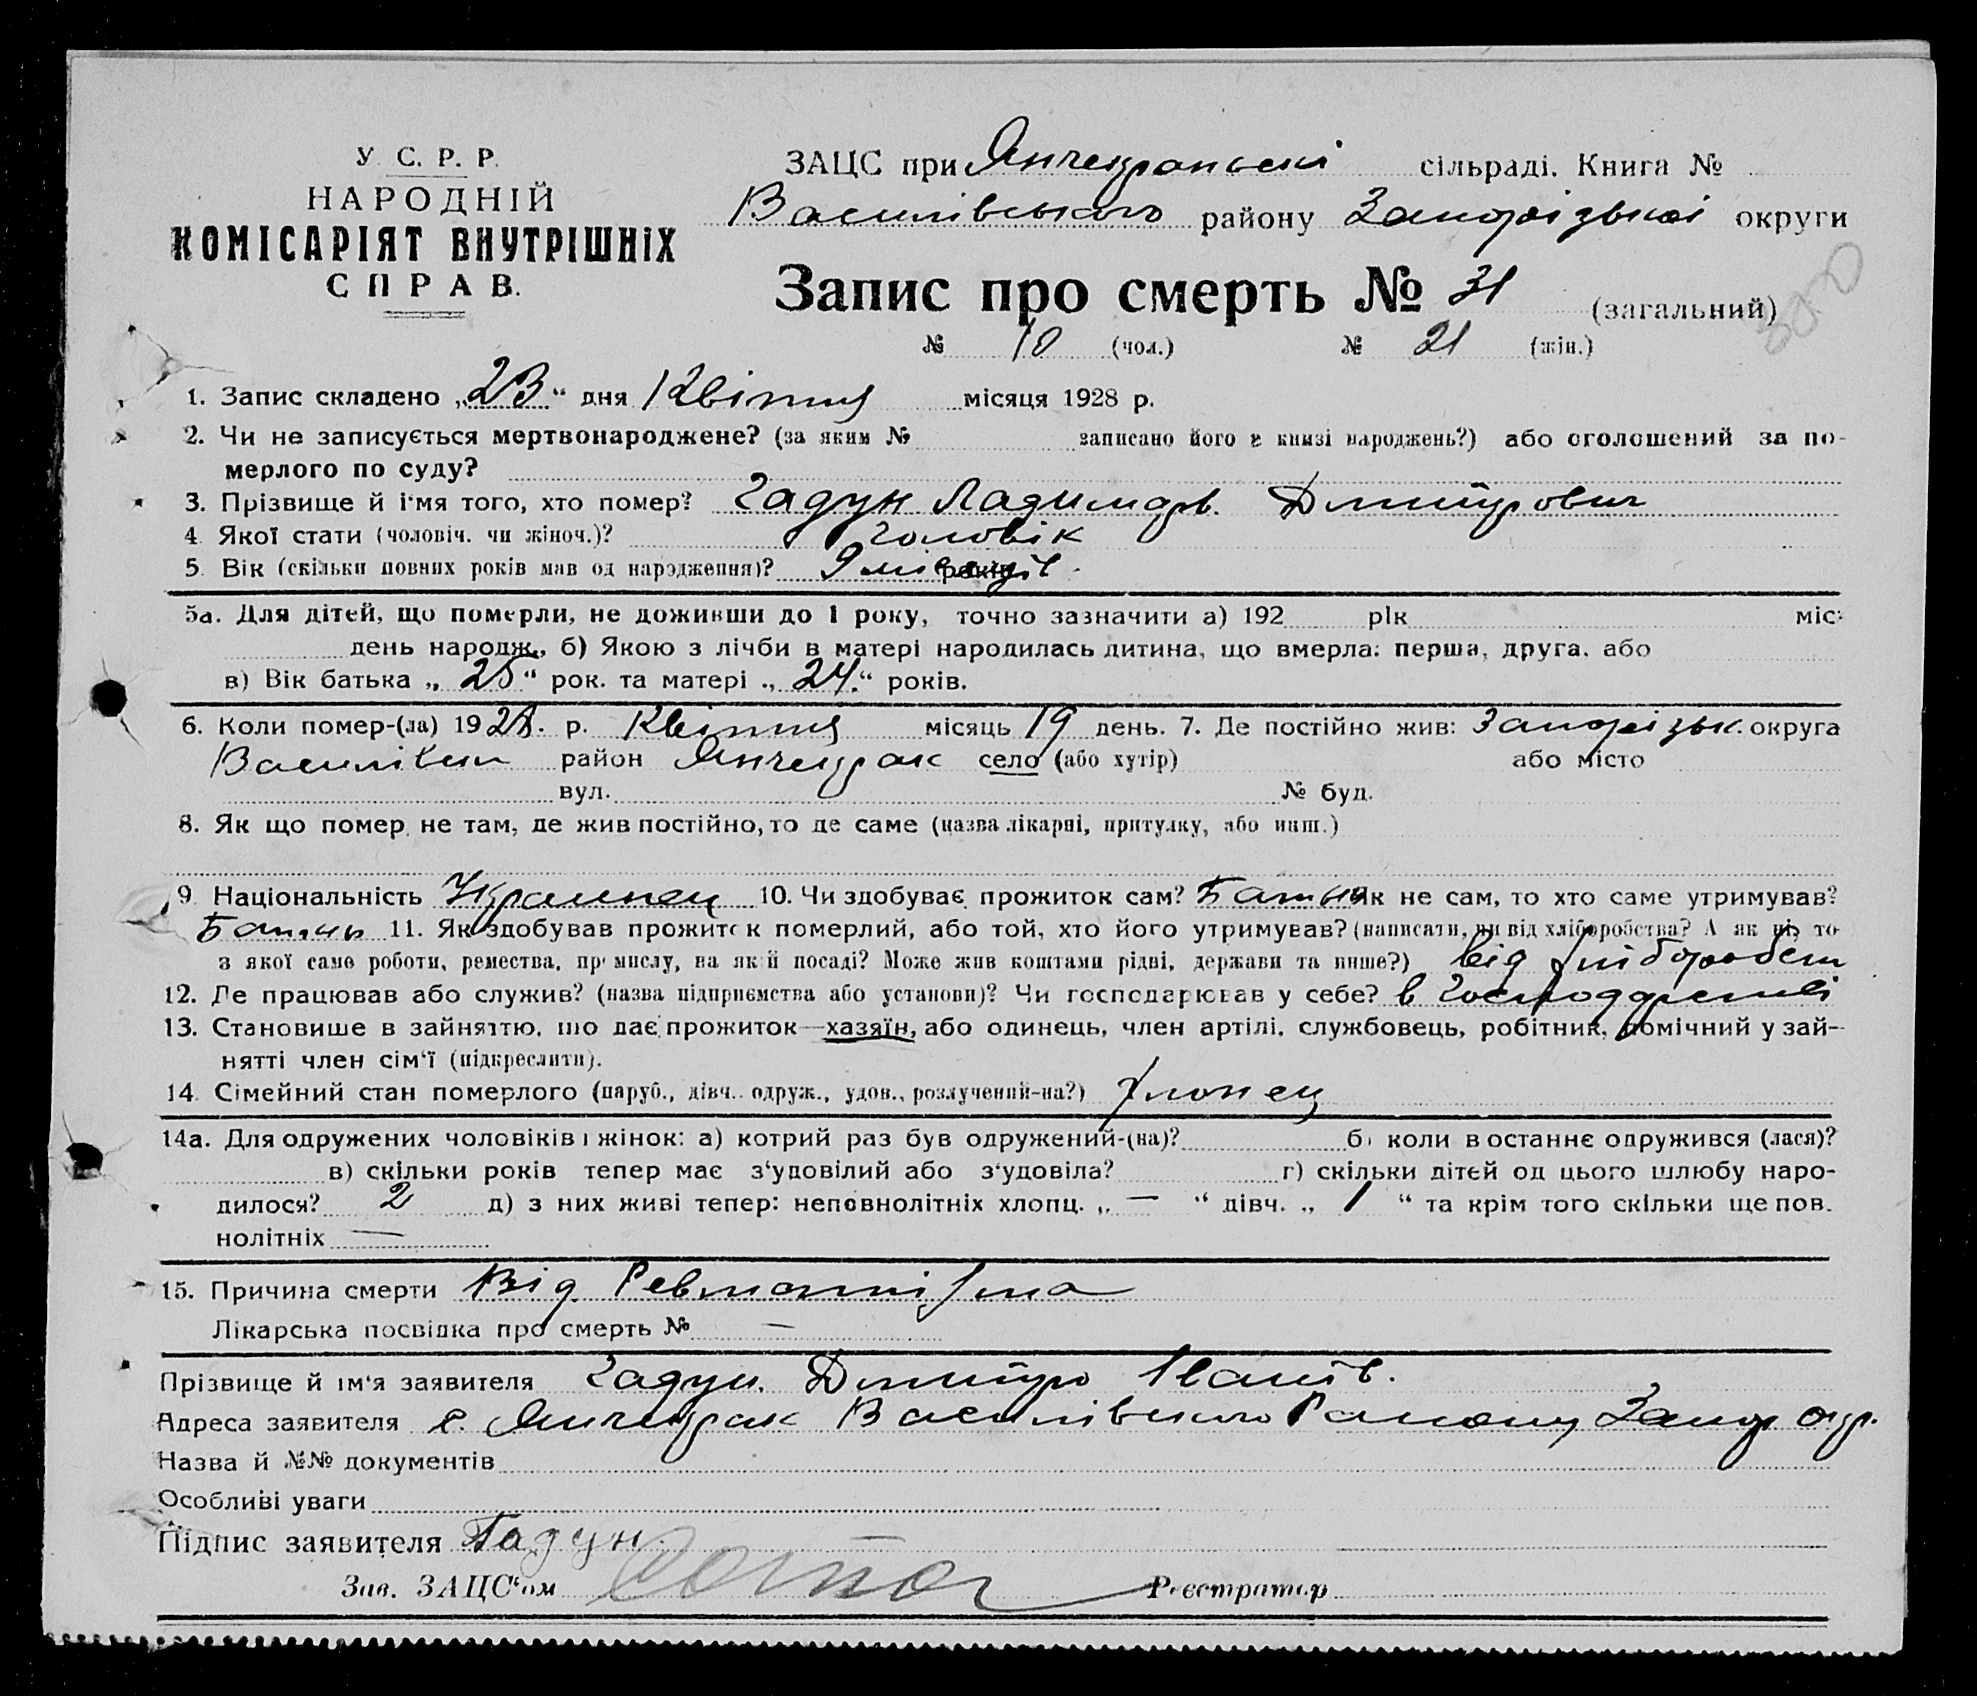 У. С. Р. Р.
НАРОДНІЙ
КОМІСАРІЯТ ВНУТРІШНІХ
СПРАВ.
ЗАЦС при Янчекракській сільраді. Книга №
Василівського району Запорізької округи
Запис про смерть № 31 (загальний)
№ 10 (чол.) № 21 (жін.)
1. Запис складено „23“ дня Квітня місяця 1928 р.
2. Чи не записується мертвонароджене? (за яким № записано його в книзі народжень?) або оголошений за по-
мерлого по суду?
3. Прізвище й і'мя того, хто помер? Гадун Ладимар. Дмитрович
4. Якої стати (чоловіч. чи жіноч.)? Чоловік
5. Вік (скільки повних років мав од народження)? 9 місяців років
5а. Для дітей, що померли, не доживши до 1 року, точно зазначити а) 192 рік міс:
день народж., б) Якою з лічби в матері народилась дитина, що вмерла: перша, друга, або
в) Вік батька „25“ рок. та матері „24.“ років.
6. Коли помер-(ла) 1928. р. Квітня місяць 19 день. 7. Де постійно жив: Запорізьк. округа
Василівськ район Янчекрак село (або хутір) або місто
вул. № буд.
8. Як що помер не там, де жив постійно, то де саме (назва лікарні, притулку, або инш.)
9. Національність Українець 10. Чи здобуває прожиток сам? Батько Як не сам, то хто саме утримував?
Батько 11. Як здобував прожиток померлий, або той, хто його утримував? (написати, чи від хліборобства? А як ні, то
з якої саме роботи, ремества, промислу, на якій посаді? Може жив коштами рідні, держави та инше?) від хліборобств
12. Де працював або служив? (назва підприємства або установи)? Чи господарював у себе? в господарстві
13. Становище в зайняттю, що дає прожиток—хазяїн, або одинець, член артілі, службовець, робітник, помічний у зай-
нятті член сім'ї (підкреслити).
14. Сімейний стан померлого (паруб., дівч. одруж., удов., розлучений-на?) хлопец
14а. Для одружених чоловіків і жінок: а) котрий раз був одружений-(на)? б) коли в останнє одружився (лася)?
в) скільки років тепер має з'удовілий або з'удовіла? г) скільки дітей од цього шлюбу наро-
дилося? 2 д) з них живі тепер: неповнолітніх хлопц. „ — “ дівч. „ 1 “ та крім того скільки ще пов.
нолітніх —
15. Причина смерти Від Ревматизма
Лікарська посвідка про смерть № —
Прізвище й ім'я заявителя Гадун. Дмитро Іванів.
Адреса заявителя с. Янчекрак Василівського Району Запор окр.
Назва й №№ документів
Особливі уваги
Підпис заявителя Гадун
Зав. ЗАЦС'ом Реєстратор